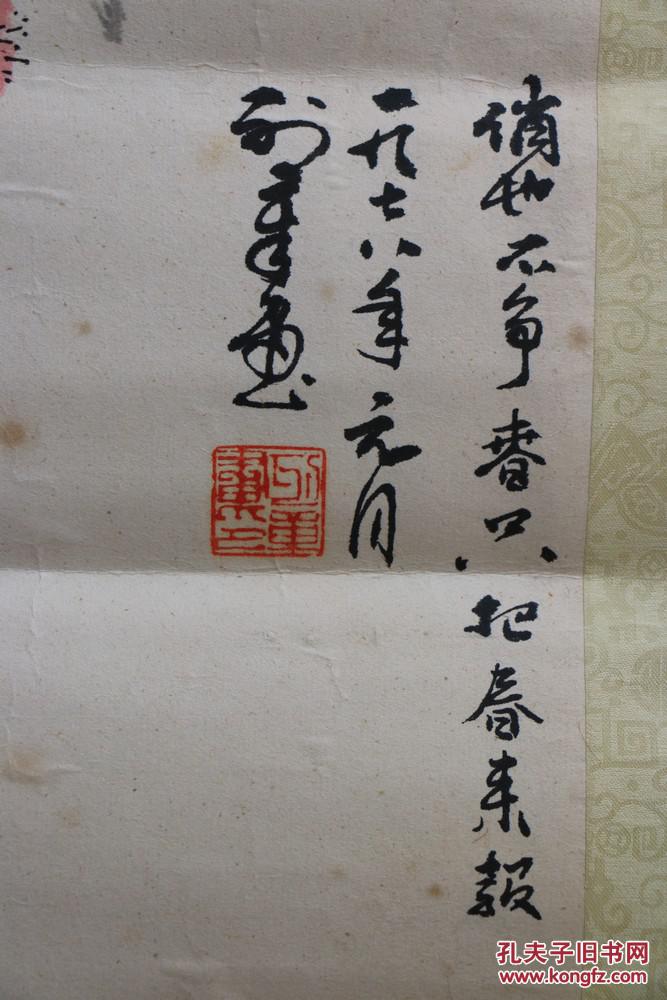 俏也不争春只把春来報
一九七八年元月
画
孔夫子旧书网
www.kongfz.com